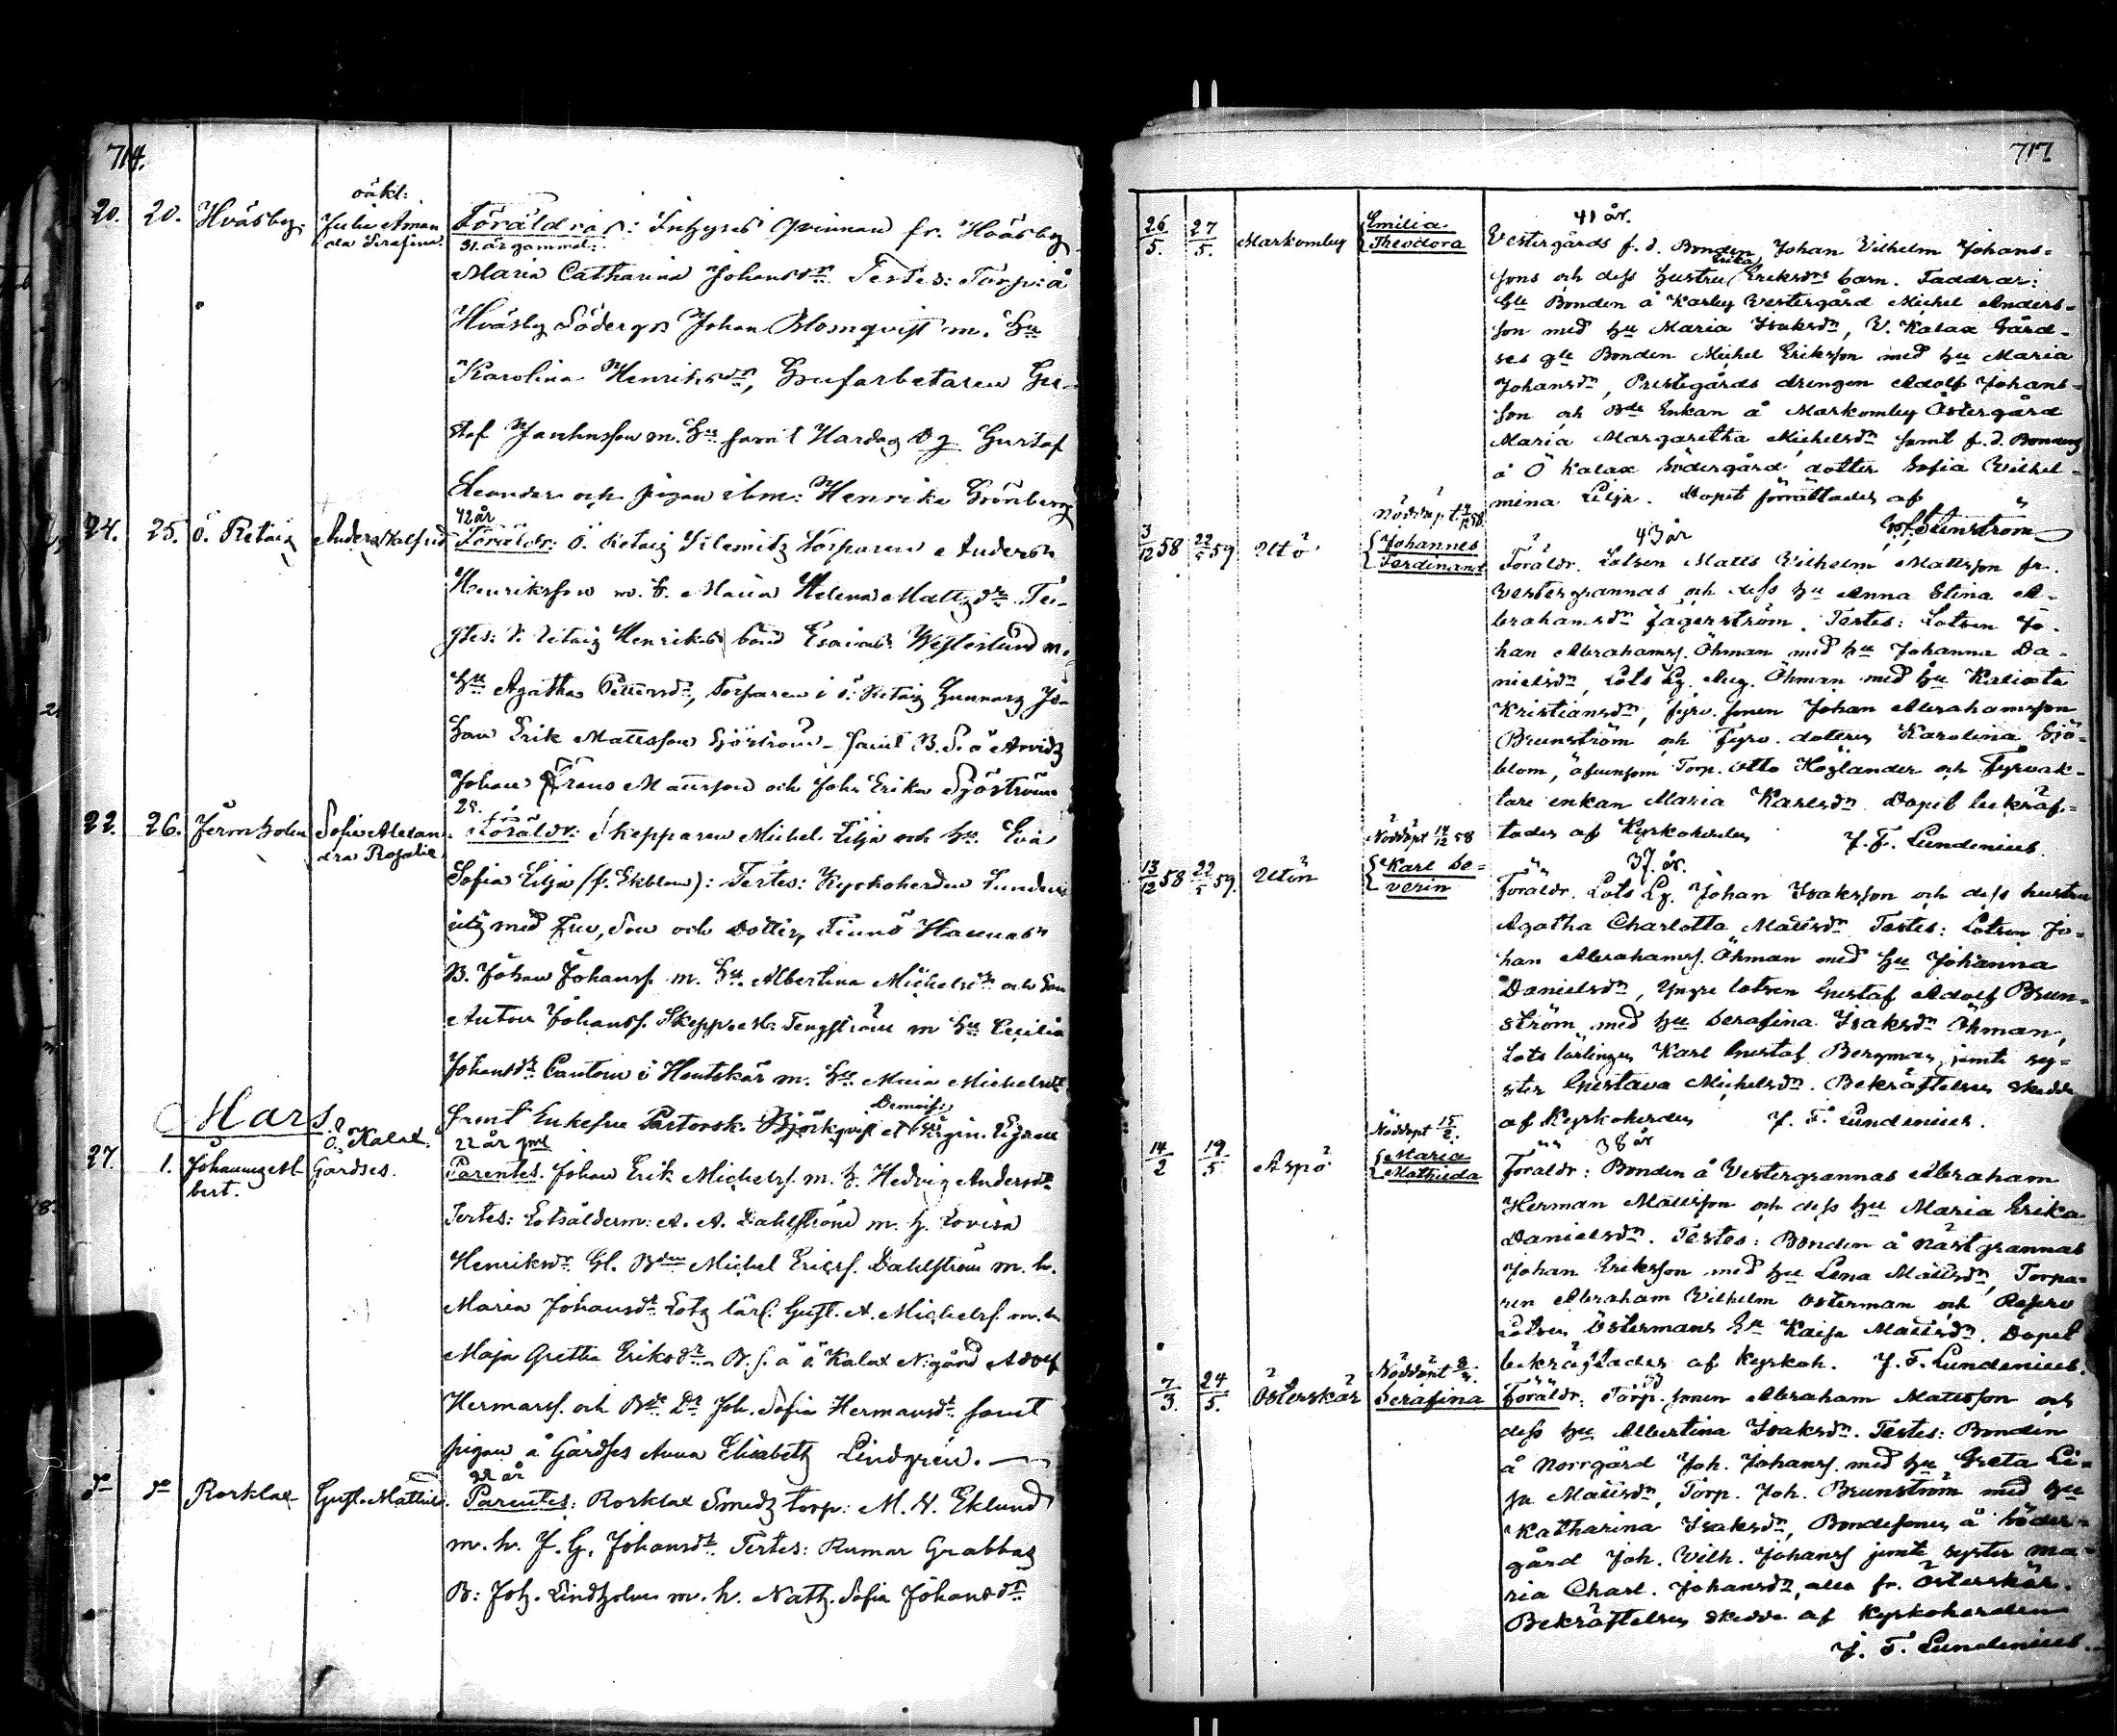 714.
oäkl:
20. 20. Hväsby. Julia Aman Föräldrar: Inhyses qvinnan fr. Hväsby
da Serafina. 31. år gammal:
Maria Catharina Johansdr. Testes: Torp: å
Hväsby Södergs Johan Blomqvist m. Hu
Karolina Henriksdr, Grufarbetaren Gu-
staf Janhnsson m. Hu samt Hardag Dg Gustaf
Leander och pigan ibm: Henrika Grönberg
42 år
24. 25. Ö. Retaig Anders Walfrid Föräldr: Ö. Retaig Torparen Anders
Henriksson m. h. Maria Helena Mattsdr Te-
stes: Retaig Henriks bond Esaias Westerlund m.
Hu Agatha Pettersdr, Torparen i Ö. Retaig Gunnarz Jo-
han Erik Mattsson Sjöström samt B. S. å Arvidz
Johan Frans Mattsson och Joha Erika Sjöström
28. år
22. 26. Jermholm Sofia Alexan- Föräldr: Skepparen Michel Lilja och Hu Eva
dra Rosalie
Sofia Lilja (f. Ekblom): Testes: Kyrkoherden Lunden-
ius med Fru, Son och Dotter, Finnö Hannas
B. Johan Johanss. m. Hu Albertina Michelsdr och Son
Anton Johanss. Skepps Tengström m Hu Cecilia
Johansdr Cantorn i Houtskär m. Hu Maria Michelsdr
Mars.
Demois:
samt Enkefru Pastorsk. Björkqvist et
22 år gml
27. 1. Johannes Al- Ö. Kalax Parentes. Johan Erik Michelss. m. h. Hedvig Andersdr
bert. Gårdses.
Testes: Lotsålderm: A. A. Dahlström m. h. Lovisa
Henriksdr Gl. Bden Michel Ericss. Dahlström m. h.
Maria Johansdr Lotz lärl. Gust. A. Michelss. m. h
Maja Gretha Eriksdr B. s. å Ö Kalax N:gård Adolf
Hermanss. och Bde Dr Joh. Sofia Hermansdr samt
pigan å Gårdses Anna Elisabeth Lindgrén.
22 år
do do Rorklax Gust. Mathild. Parentes: Rorklax Smedz torp: M. W. Eklund
m. h. J. G. Johansdr Testes: Rumar Grabbas
B: Joh. Lindholm m. h. Nath. Sofia Johansdr
717
41 år.
26/5. 27/5. Markomby Emilia Theodora Vestergårds f. d. Bonden Johan Vilhelm Johans-
Erika
sons och dess hustru Eriksdrs barn. Faddrar:
Gle Bonden å Karby Vestergård Michel Anders-
son med hu Maria Isaksdn, V. Kalax Gård-
ses gle Bonden Michel Eriksson med hu Maria
Johansdn, Prestgårds drengen Adolf Johans-
son och Bde Enkan å Markomby Östergård
Maria Margaretha Michelsdn samt f. d. Bondens
å Ö Kalax Södergård dotter Sofia Vilhel-
mina Lilja. Dopet förrättades af
Nöddöpt 4/12 58.
43 år
3/12 58 22/5 59 Utö Johannes Ferdinand Föräldr. Lotsen Matts Vilhelm Mattsson fr.
Vestergrannas och dess hu Anna Stina A-
brahamsdn Fagerström. Testes: Lotsen Jo-
han Abrahamss. Öhman med hu Johanna Da-
nielsdn, Lots Lg. Aug. Öhman med hu Kalixta
Kristiansdn, fyrv. sonen Johan Abrahamsson
Brunström och fyrv. dottren Karolina Sjö-
blom, äfvensom Torp. Otto Höglander och Fyrvak-
tare enkan Maria Karlsdn. Dopet bekräf-
tades af Kyrkoherden J. F. Lundenius.
Nöddöpt 14/12 58
37 år.
13/12 58 22/5 59. Utön Karl Se- verin Föräldr. Lots Lg. Johan Isaksson och dess hustru
Agatha Charlotta Mattsdn. Testes: Lotsen Jo-
han Abrahamss. Öhman med hu Johanna
Danielsdn, Yngre lotsen Gustaf Adolf Brun-
ström med hu Serafina Isaksdn Öhman,
Lots lärlingen Karl Gustaf Bergman jemte sy-
ster Gustava Michelsdn. Bekräftelsen skedde
af Kyrkoherden J. F. Lundenius.
Nöddöpt 15/2.
38 år
14/2 19/5 Aspö Maria Mathilda Föräldr: Bonden å Vestergrannas Abraham
Herman Mattsson och dess hu Maria Erika
Danielsdn. Testes: Bonden å Nästgrannas
Johan Eriksson med hu Lena Mattsdn, Torpa-
ren Abraham Vilhelm Österman och Reserv
Lotsen Östermans Hu Kaisa Mattsdn. Dopet
bekräftades af Kyrkoh. J. F. Lundenius.
Nöddöpt 8/3.
7/3. 24/5. Österskär Serafina Föräldr: Torp. sonen Abraham Mattsson och
dess hu Albertina Isaksdn. Testes: Bonden
å Norrgård Joh. Johanss. med hu Greta Li-
sa Mattsdn, Torp. Joh. Brunström med hu
Katharina Isaksdn, Bondesonen å Söder-
gård Joh. Vilh. Johanss jemte syster Ma-
ria Charl. Johansdn, alla fr. Österskär.
Bekräftelsen skedde af Kyrkoherden
J. F. Lundenius.